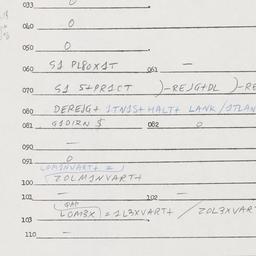 033 0
040 0
050 0
060 S1 PL80X1T 061 —
070 S1 5+PR1CT )-REJG+DL )-RE
080 DEREJG+ 1TN1S+ HALT+ LANK /1TLAN
081 G1D1RN $ 082 0
090 —
091 0
LOM1NVART+ = 1
100 ZOLM1NVART+
101 — 102 —
GAP
103 LOM3X) = 1L3XVART+ / ZOL3XVAR
110 —